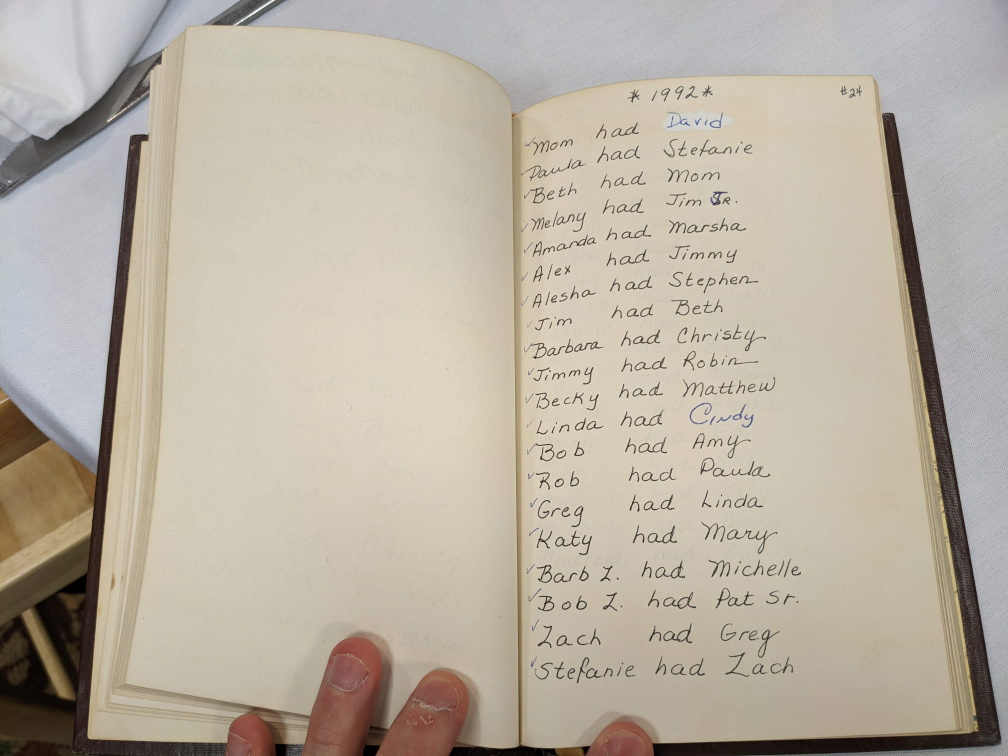 * 1992 * #24
✓ Mom had David
Paula had Stefanie
✓ Beth had Mom
✓ Melany had Jim Jr.
✓ Amanda had Marsha
✓ Alex had Jimmy
✓ Alesha had Stephen
✓ Jim had Beth
✓ Barbara had Christy
✓ Jimmy had Robin
✓ Becky had Matthew
✓ Linda had Cindy
✓ Bob had Amy
✓ Rob had Paula
✓ Greg had Linda
✓ Katy had Mary
✓ Barb Z. had Michelle
✓ Bob Z. had Pat Sr.
✓ Zach had Greg
✓ Stefanie had Zach